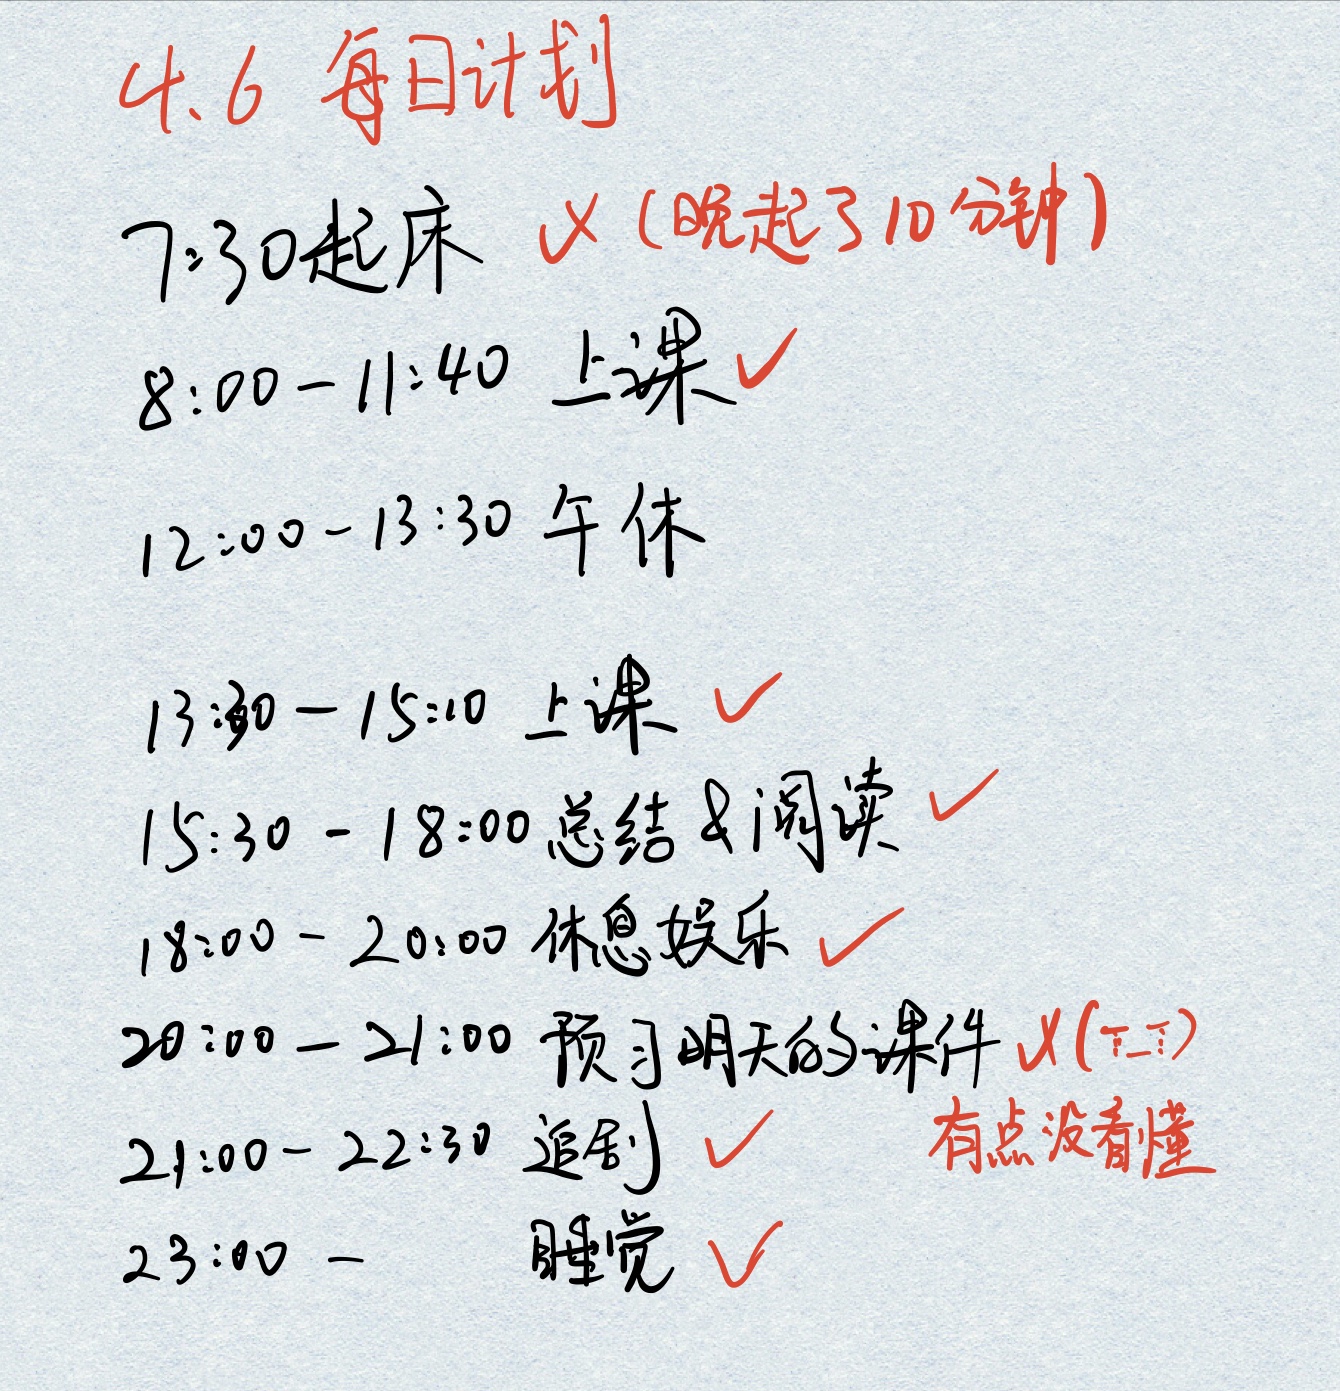 4.6 每日计划
7:30起床 ✗（晚起了10分钟）
8:00-11:40 上课 ✓
12:00-13:30 午休
13:30-15:10 上课 ✓
15:30-18:00 总结&阅读 ✓
18:00-20:00 休息娱乐 ✓
20:00-21:00 预习明天的课件 ✗(T_T)
有点没看懂
21:00-22:30 追剧 ✓
23:00- 睡觉 ✓